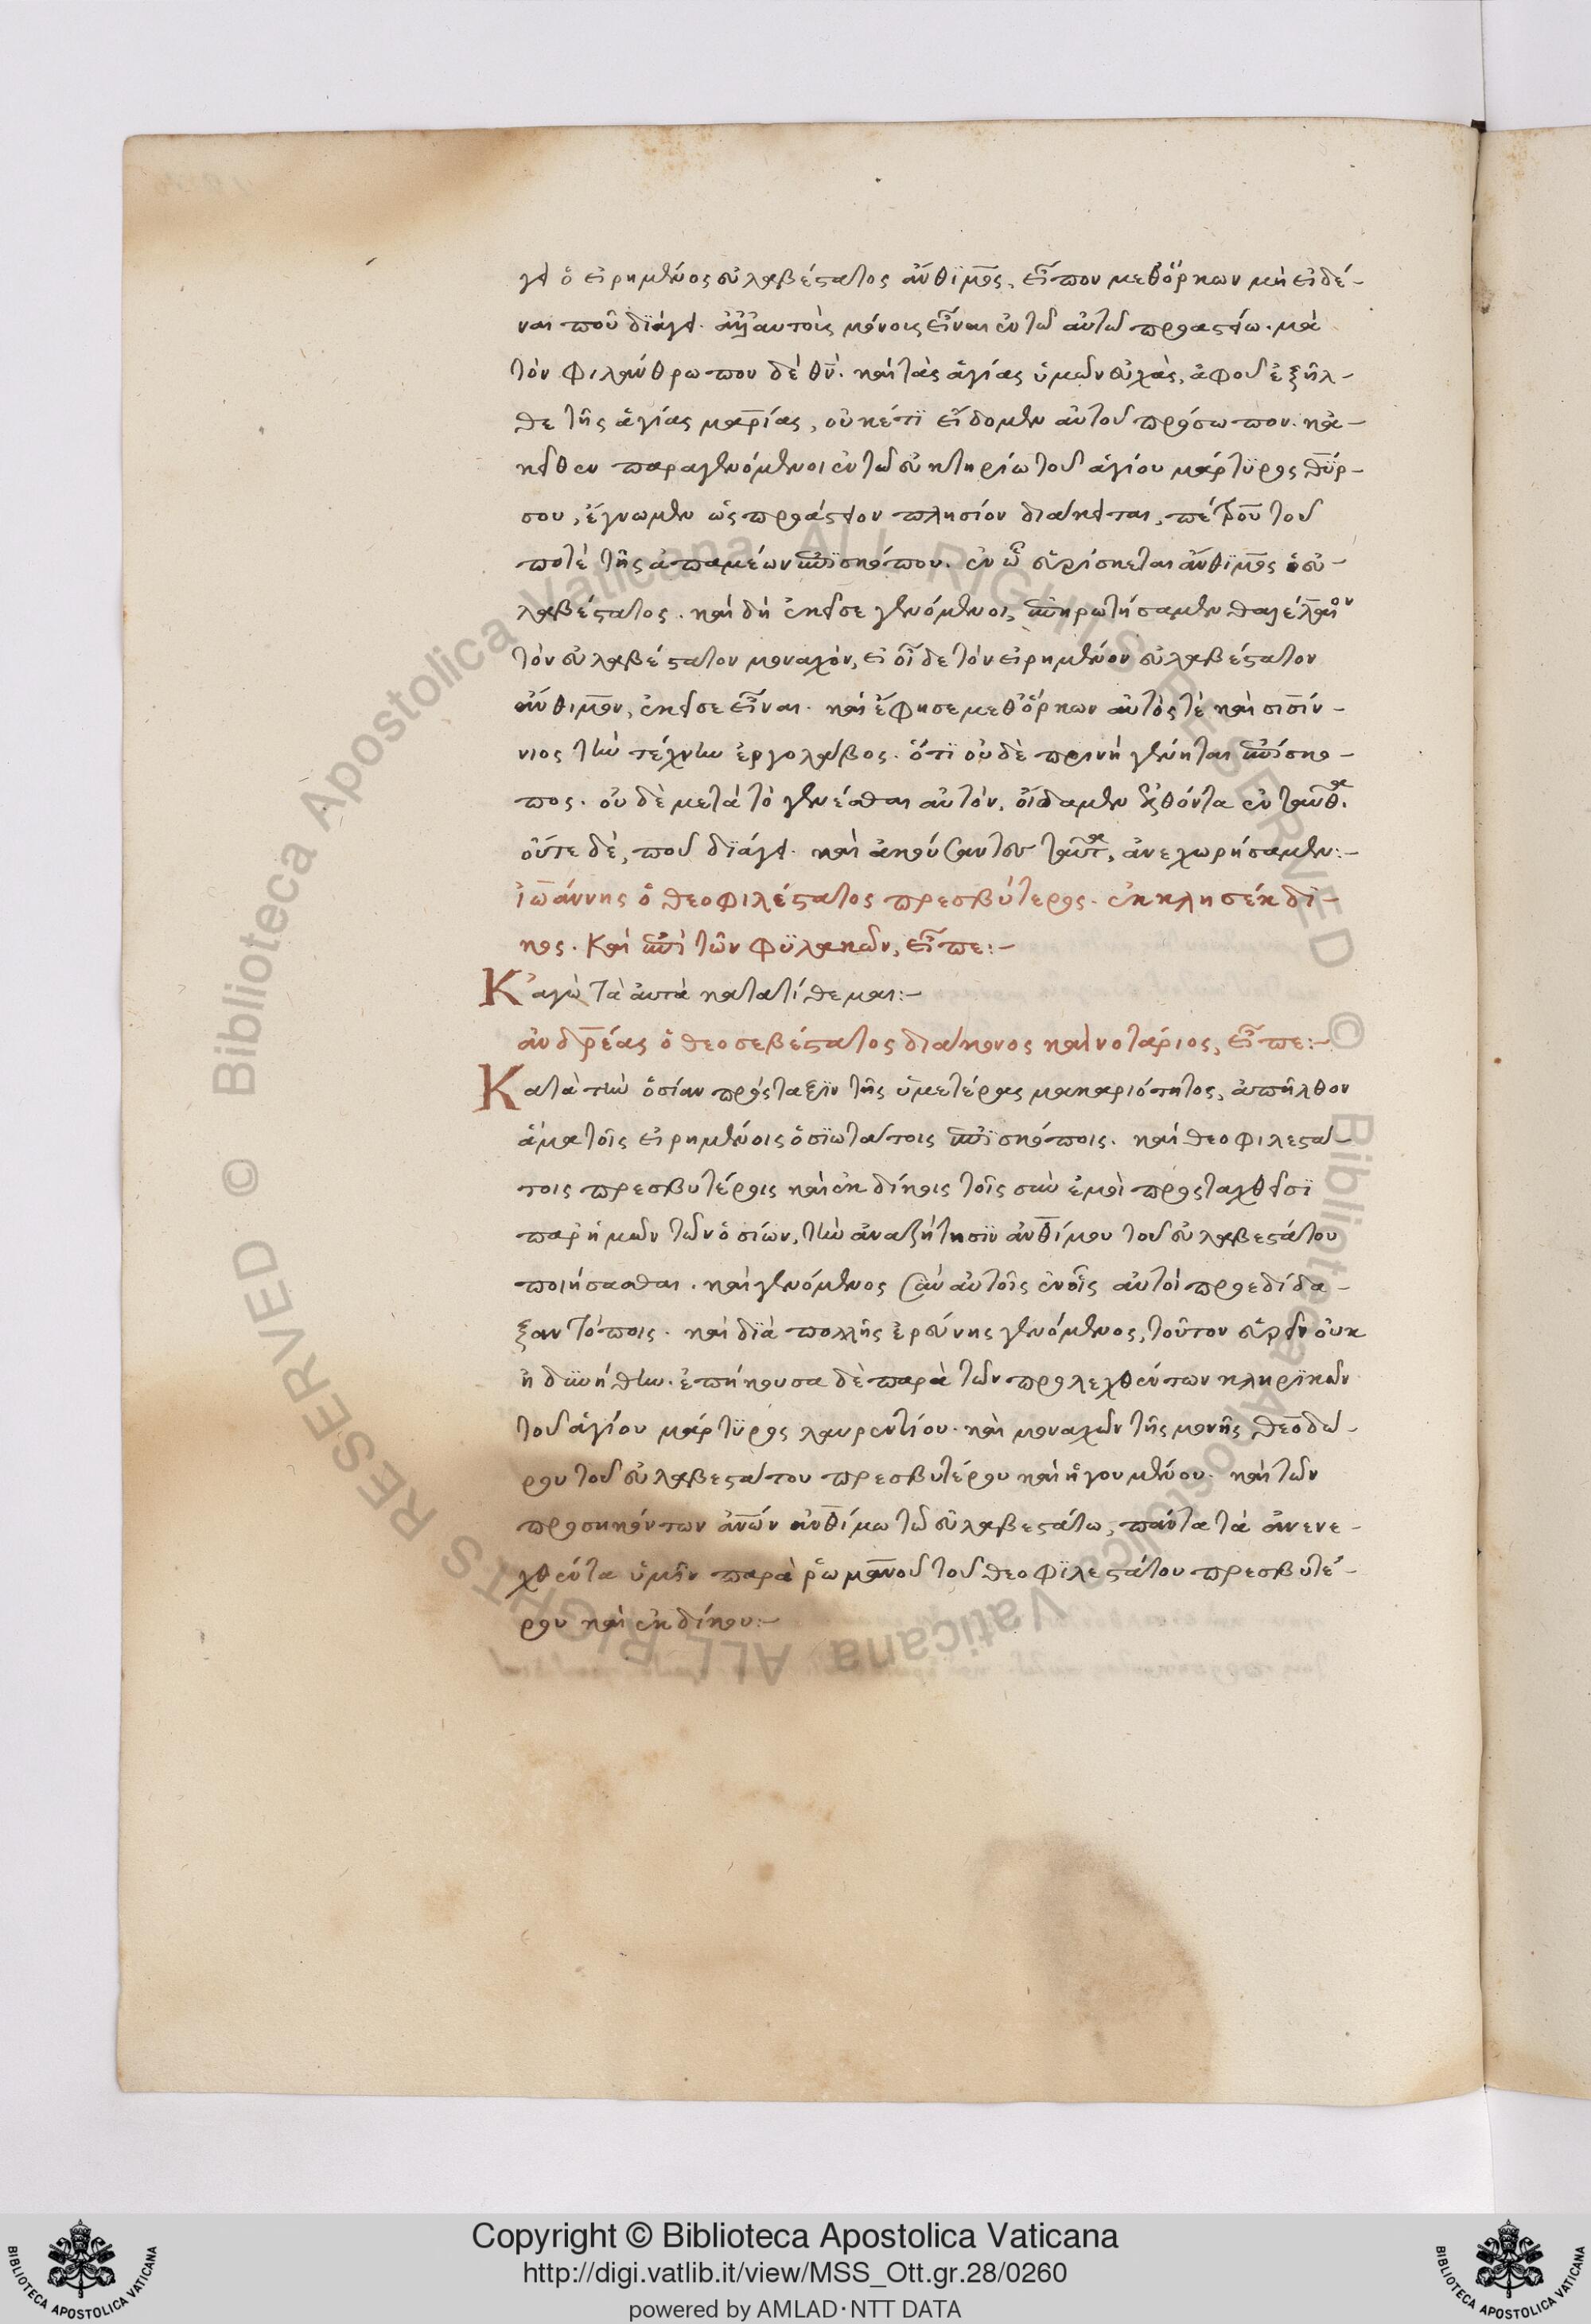 γει ὁ εἰρημένος εὐλαβέστατος ἄνθϊμος, εἶπον μεθόρκων μὴ εἰδέ-
ναι ποῦ διάγει. ἀλλ' αὐτοὶς μόνοις εἶναι ἐν τῶ αὐτῶ προαστείω. μὰ
τὸν φιλάνθρωπον δὲ θν̄. καὶ τὰς ἁγίας ὑμῶν εὐχὰς, ἀφοῦ ἐξῆλ-
θε τῆς ἁγίας μαρίας, οὐκέτϊ εἴδομεν αὐτοῦ πρόσωπον. κἀ-
κεῖθεν παραγενόμενοι ἐν τῶ εὐκτηρίω τοῦ ἁγίου μάρτϋρος θύρ-
σου, ἔγνωμεν ὡς προάστειον πλησίον διάκειται, πέτρου τοῦ
ποτὲ τῆς ἀπαμέων ἐπϊσκόπου. ἐν ὧ εὑρίσκεται ἄνθϊμος ὁ εὐ-
λαβέστατος. καὶ δὴ ἐκεῖσε γενόμενοι, ἐπηρωτήσαμεν
τὸν εὐλαβέστατον μοναχόν, εἰ οἶδε τὸν εἰρημένον εὐλαβέστατον
ἄνθιμον, ἐκεῖσε εἶναι. καὶ ἔφησε μεθόρκων αὐτός τὲ καὶ σισίν-
νιος τὴν τέχνην ἐργολάβος. ὅτϊ οὐδὲ πρινὴ γένηται ἐπίσκο-
πος. οὐδὲ μετὰ τὸ γενέσθαι αὐτόν, οἴδαμεν ἐλθόντα ἐνταῦθα.
οὔτε δὲ, ποῦ διάγει. καὶ ἀκούσαντες ταῦτα, ἀνεχωρήσαμεν:-
ἰωάννης ὁ θεοφιλέστατος πρεσβύτερος. ἐκκλησέκδϊ-
κος. Καὶ ἐπὶ τῶν φϋλακῶν, εἶπε:-
Κἀγὼ τὰ ἀυτὰ κατατίθεμαι:-
ἀνδρέας ὁ θεοσεβέστατος διάκονος καὶ νοτάριος, εἶπε:-
Κατὰ τὴν ὁσίαν πρόσταξϊν τῆς ὑμετέρας μακαριότητος, ἀπῆλθον
ἅμα τοῖς εἰρημένοις ὁσϊωτάτοις ἐπϊσκόποις. καὶ θεοφιλεστά-
τοις πρεσβυτέροις καὶ ἐκδίκοις τοῖς σὺν ἐμοὶ προσταχθεῖσϊ
παρἡμῶν τῶν ὁσίων, τὴν ἀναζήτησϊν ἀνθίμου τοῦ εὐλαβεστάτου
ποιήσασθαι. καὶ γενόμενος σὺν αὐτοῖς ἐν οἷς αὐτοὶ προεδίδα-
ξαν τόποις. καὶ δϊὰ πολλῆς ἐρεύνης γενόμενος, τοῦτον εὑρεῖν οὐκ
ἠδϋνήθην. ἐπήκουσα δὲ παρὰ τῶν προλεχθέντων κληρϊκῶν
τοῦ ἁγίου μάρτϋρος λαυρεντίου. καὶ μοναχῶν τῆς μονῆς θεοδώ-
ρου τοῦ εὐλαβεστάτου πρεσβυτέρου καὶ ἡγουμένου. καὶ τῶν
προσηκόντων ἀνῶν ἀνθίμω τῶ εὐλαβεστάτω, πάντα τὰ ἀνενε-
χθέντα ὑμῖν παρὰ ῥωμανοῦ τοῦ θεοφϊλεστάτου πρεσβυτέ-
ρου καὶ ἐκδίκου:-
Copyright © Biblioteca Apostolica Vaticana
http://digi.vatlib.it/view/MSS_Ott.gr.28/0260
powered by AMLAD·NTT DATA
BIBLIOTECA APOSTOLICA VATICANA
BIBLIOTECA APOSTOLICA VATICANA
© Biblioteca Apostolica Vaticana ALL RIGHTS RESERVED
© Biblioteca Apostolica Vaticana ALL RIGHTS RESERVED